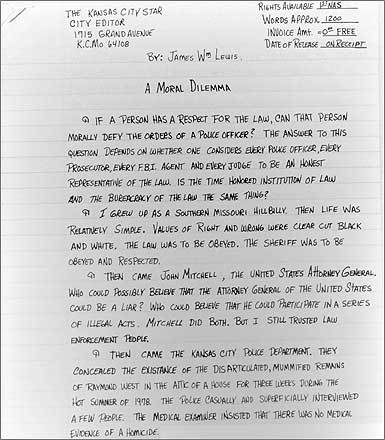 THE KANSAS CITY STAR
CITY EDITOR
1715 GRAND AVENUE
K.C.MO 64108
RIGHTS AVAILABLE
WORDS APPROX. 1200
INVOICE AMT. FREE
DATE OF RELEASE ON RECEIPT
BY: JAMES WM LEWIS
A MORAL DILEMMA
¶ IF A PERSON HAS A RESPECT FOR THE LAW, CAN THAT PERSON
MORALLY DEFY THE ORDERS OF A POLICE OFFICER? THE ANSWER TO THIS
QUESTION DEPENDS ON WHETHER ONE CONSIDERS EVERY POLICE OFFICER, EVERY
PROSECUTOR, EVERY F.B.I. AGENT AND EVERY JUDGE TO BE AN HONEST
REPRESENTATIVE OF THE LAW. IS THE TIME HONORED INSTITUTION OF LAW
AND THE BUREAUCRACY OF THE LAW THE SAME THING?
¶ I GREW UP AS A SOUTHERN MISSOURI HILLBILLY. THEN LIFE WAS
RELATIVELY SIMPLE. VALUES OF RIGHT AND WRONG WERE CLEAR CUT BLACK
AND WHITE. THE LAW WAS TO BE OBEYED. THE SHERIFF WAS TO BE
OBEYED AND RESPECTED.
¶ THEN CAME JOHN MITCHELL, THE UNITED STATES ATTORNEY GENERAL.
WHO COULD POSSIBLY BELIEVE THAT THE ATTORNEY GENERAL OF THE UNITED STATES
COULD BE A LIAR? WHO COULD BELIEVE THAT HE COULD PARTICIPATE IN A SERIES
OF ILLEGAL ACTS. MITCHELL DID BOTH. BUT I STILL TRUSTED LAW
ENFORCEMENT PEOPLE.
¶ THEN CAME THE KANSAS CITY POLICE DEPARTMENT. THEY
CONCEALED THE EXISTANCE OF THE DISARTICULATED, MUMMIFIED REMAINS
OF RAYMOND WEST IN THE ATTIC OF A HOUSE FOR THREE WEEKS DURING THE
HOT SUMMER OF 1978. THE POLICE CASUALLY AND SUPERFICIALLY INTERVIEWED
A FEW PEOPLE. THE MEDICAL EXAMINER INSISTED THAT THERE WAS NO MEDICAL
EVIDENCE OF A HOMICIDE.